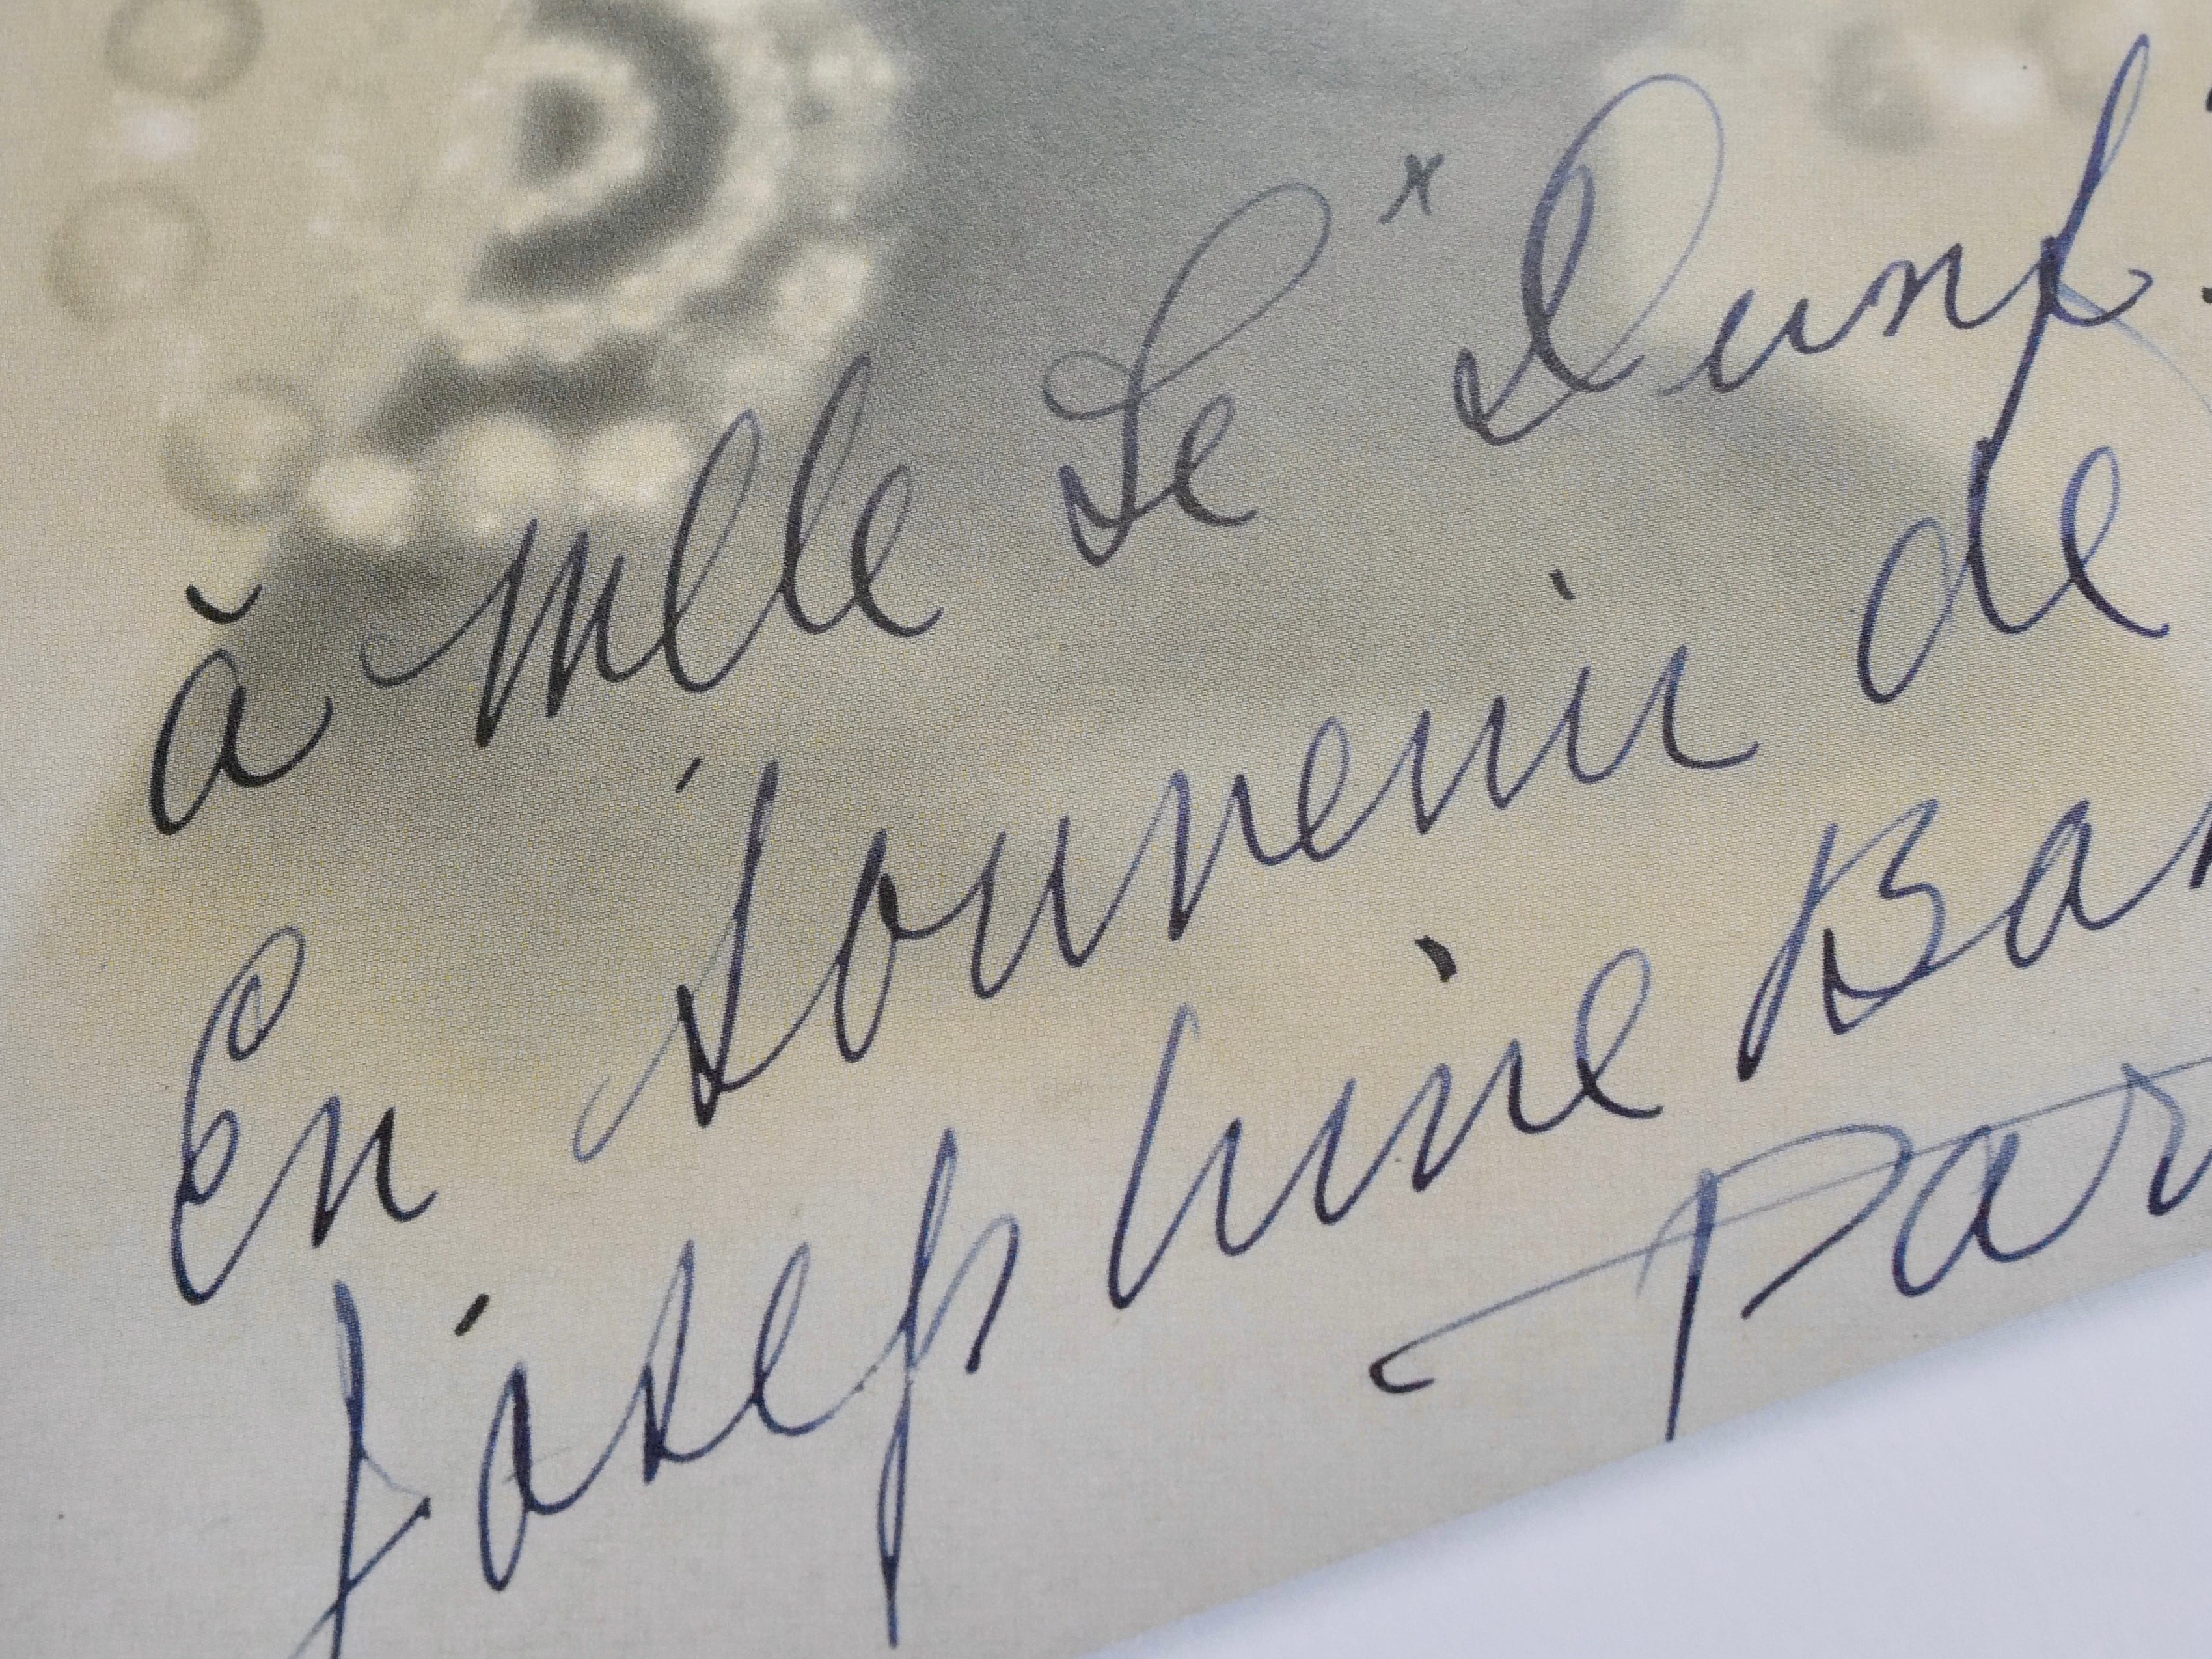 à Mlle Le
En Souvenir de
Josephine Bak
Par